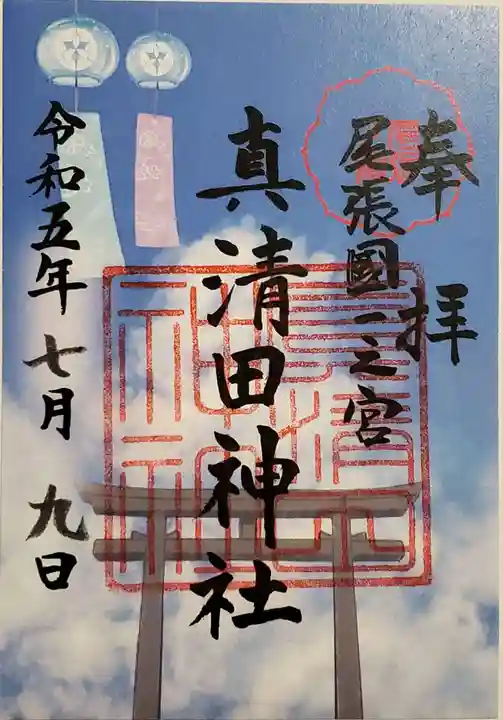 奉拝
尾張國一之宮
真清田神社
令和五年七月九日